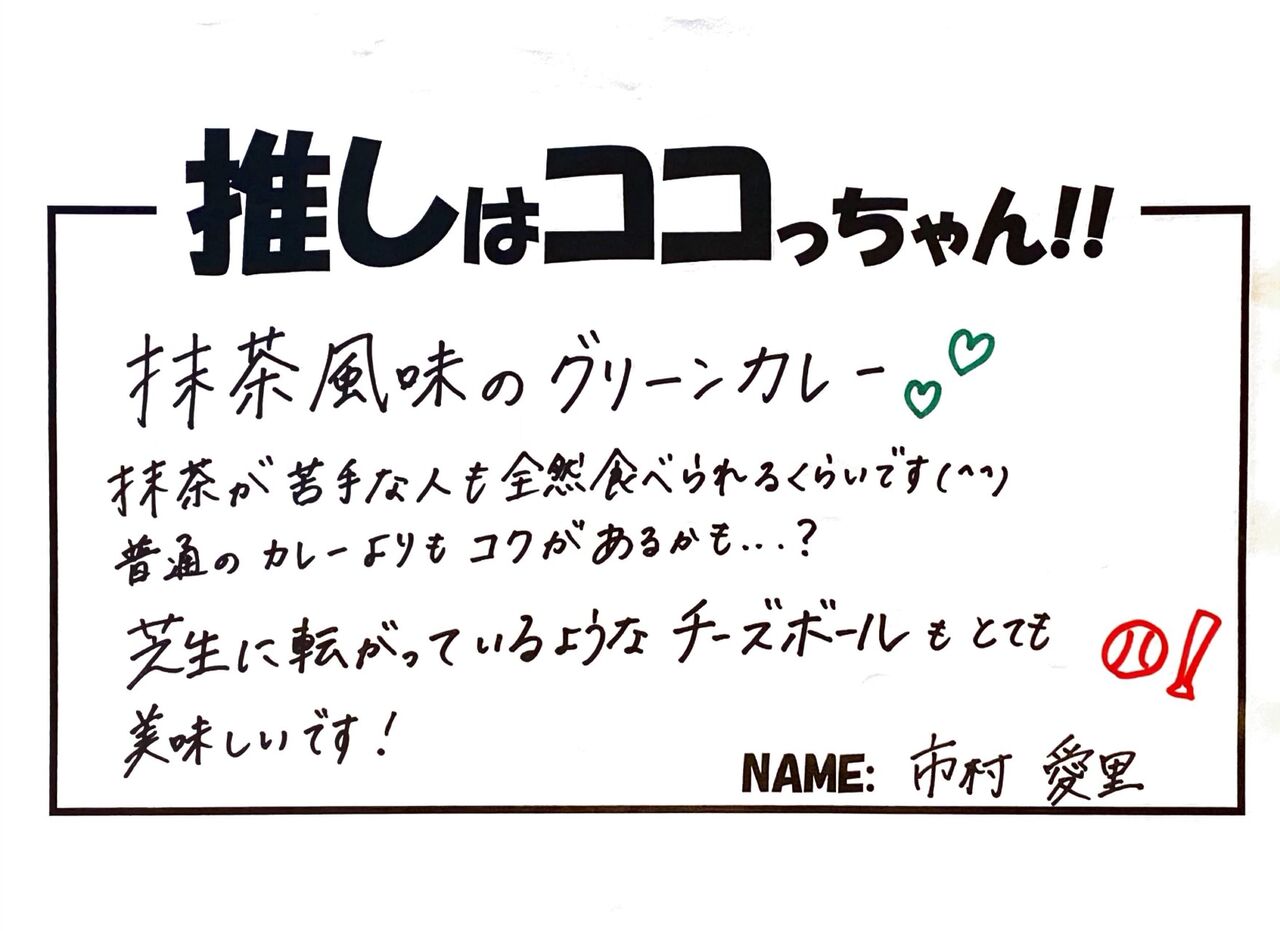 推しはココっちゃん!!
抹茶風味のグリーンカレー
抹茶が苦手な人も全然食べられるくらいです(^^)
普通のカレーよりもコクがあるかも...?
芝生に転がっているようなチーズボールもとても
美味しいです!
NAME: 市村 愛里